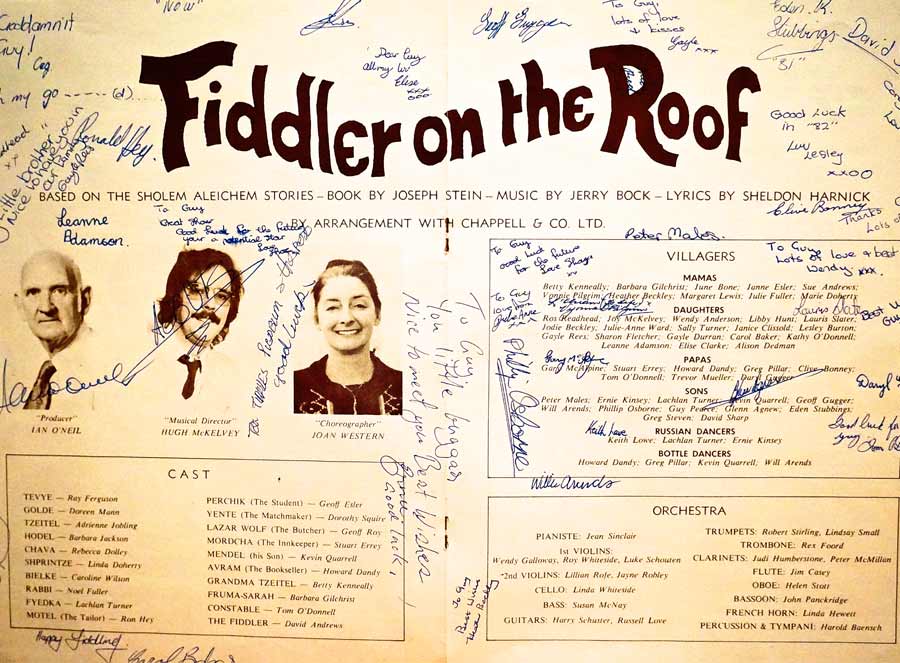 "Now"
Goddamnit
Guy!
Geoff Gugger
To Guy
lots of love
& kisses
Gayle xxx
Eden. R.
Stubbings
"81"
David
'Dear Guy
all my luv
Elise
xxx
ooo
my go ----- (d)...
Ronald Hey.
Good Luck
in "82"
Luv
Lesley
xxoo
Little brother
Nice to have you in
our family
Fiddler on the Roof
BASED ON THE SHOLEM ALEICHEM STORIES – BOOK BY JOSEPH STEIN – MUSIC BY JERRY BOCK – LYRICS BY SHELDON HARNICK
BY ARRANGEMENT WITH CHAPPELL & CO. LTD.
Leanne
Adamson.
To Guy
Great Show
Good luck for the future
your a potential star
Clive Bonney
Thanks
Lots of
Peter Males.
To Guy
Lots of love & best
Wendy xxx.
To Guy
good luck
for the future
Love
To Guy
love from
"Producer"
IAN O'NEIL
"Musical Director"
HUGH McKELVEY
"Choreographer"
JOAN WESTERN
good luck
To Guy
You little beggar
Nice to meet you Best Wishes
Good luck,
CAST
TEVYE — Ray Ferguson
GOLDE — Doreen Mann
TZEITEL — Adrienne Jobling
HODEL — Barbara Jackson
CHAVA — Rebecca Dolley
SHPRINTZE — Linda Doherty
BIELKE — Caroline Wilson
RABBI — Noel Fuller
FYEDKA — Lachlan Turner
MOTEL (The Tailor) — Ron Hey
PERCHIK (The Student) — Geoff Esler
YENTE (The Matchmaker) — Dorothy Squire
LAZAR WOLF (The Butcher) — Geoff Roy
MORDCHA (The Innkeeper) — Stuart Errey
MENDEL (his Son) — Kevin Quarrell
AVRAM (The Bookseller) — Howard Dandy
GRANDMA TZEITEL — Betty Kenneally
FRUMA-SARAH — Barbara Gilchrist
CONSTABLE — Tom O'Donnell
THE FIDDLER — David Andrews
Happy Fiddling!
VILLAGERS
MAMAS
Betty Kenneally; Barbara Gilchrist; June Bone; Janne Esler; Sue Andrews;
Vonnie Pilgrim; Heather Beckley; Margaret Lewis; Julie Fuller; Marie Doherty
DAUGHTERS
Ros Readhead; Joy McKelvey; Wendy Anderson; Libby Hunt; Lauris Slater;
Jodie Beckley; Julie-Anne Ward; Sally Turner; Janice Clissold; Lesley Burton;
Gayle Rees; Sharon Fletcher; Gayle Durran; Carol Baker; Kathy O'Donnell;
Leanne Adamson; Elise Clarke; Alison Dedman
PAPAS
Gary McAlpine; Stuart Errey; Howard Dandy; Greg Pillar; Clive Bonney;
Tom O'Donnell; Trevor Mueller;
SONS
Peter Males; Ernie Kinsey; Lachlan Turner; Kevin Quarrell; Geoff Gugger;
Will Arends; Phillip Osborne; Guy Pearce; Glenn Agnew; Eden Stubbings;
Greg Steven; David Sharp
RUSSIAN DANCERS
Keith Lowe; Lachlan Turner; Ernie Kinsey
BOTTLE DANCERS
Howard Dandy; Greg Pillar; Kevin Quarrell; Will Arends
Phillip Osborne
Keith Lowe
Best
Daryl
Good luck for
Willie Arends
To Guy
Best Wishes
ORCHESTRA
PIANISTE: Jean Sinclair
1st VIOLINS:
Wendy Galloway, Roy Whiteside, Luke Schouten
*2nd VIOLINS: Lillian Rolfe, Jayne Robley
CELLO: Linda Whiteside
BASS: Susan McNay
GUITARS: Harry Schutter, Russell Love
TRUMPETS: Robert Stirling, Lindsay Small
TROMBONE: Rex Foord
CLARINETS: Judi Humberstone, Peter McMillan
FLUTE: Jim Casey
OBOE: Helen Stott
BASSOON: John Panckridge
FRENCH HORN: Linda Hewett
PERCUSSION & TYMPANI: Harold Baensch